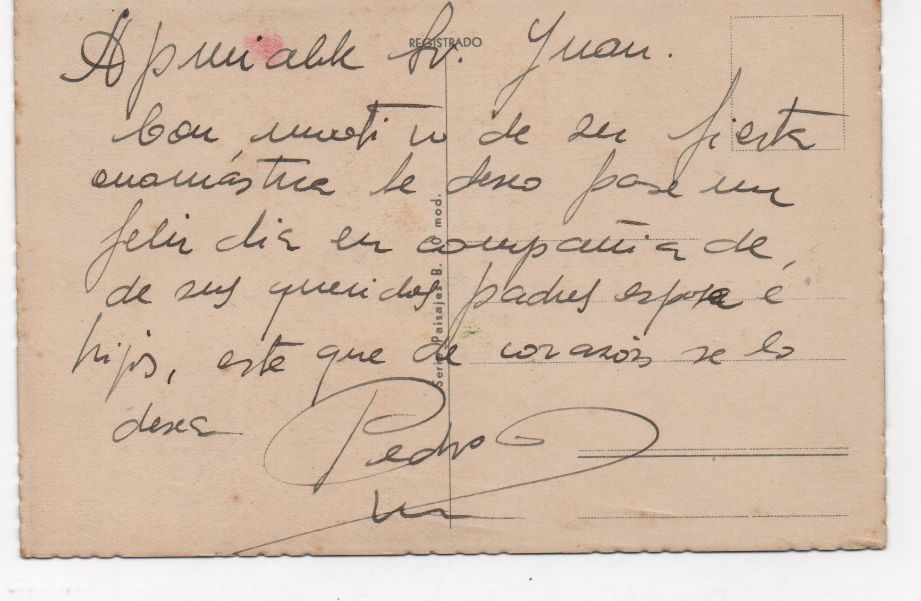 Apreciable Sr. Juan.
REGISTRADO
Con motivo de su fiesta
onomástica le deseo pase un
feliz dia en compañia de
de sus queridos padres esposa é
hijos, este que de corazón se lo
desea
Pedro
Serie Paisajes B. mod.